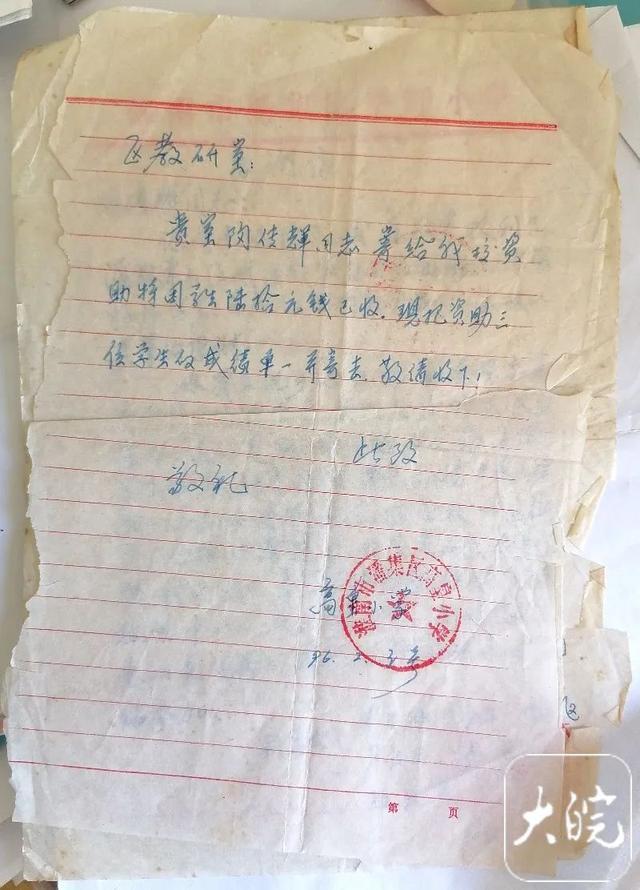 区教研室:
贵室陶传辉同志寄给我校资
助特困生陆拾元钱已收。现把资助三
位学生的成绩单一并寄去,敬请收下!
此致
敬礼
高皇小学
淮南市潘集区高皇小学
96.2.
第 页
大皖